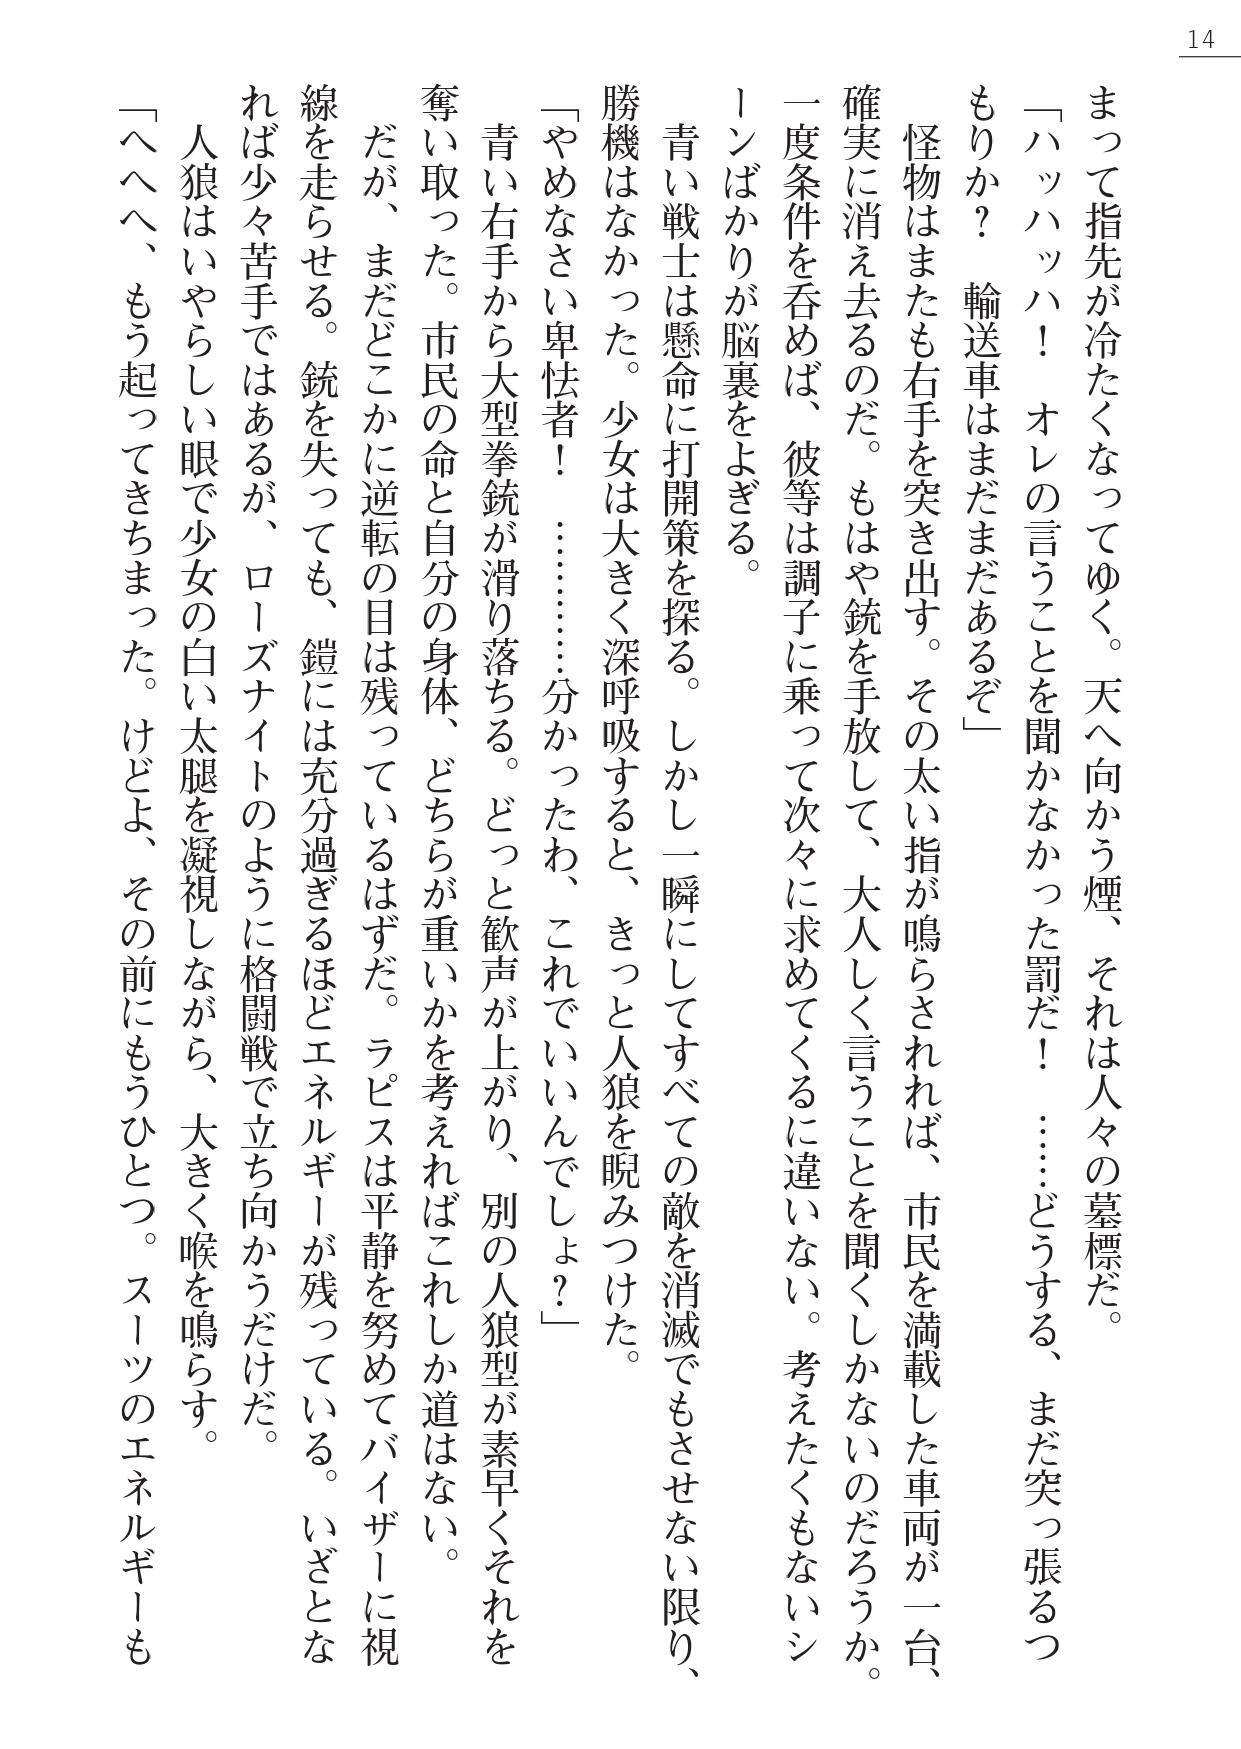 14
まって指先が冷たくなってゆく。天へ向かう煙、それは人々の墓標だ。
「ハッハッハ！　オレの言うことを聞かなかった罰だ！　……どうする、まだ突っ張るつ
もりか？　輸送車はまだまだあるぞ」
　怪物はまたも右手を突き出す。その太い指が鳴らされれば、市民を満載した車両が一台、
確実に消え去るのだ。もはや銃を手放して、大人しく言うことを聞くしかないのだろうか。
一度条件を呑めば、彼等は調子に乗って次々に求めてくるに違いない。考えたくもないシ
ーンばかりが脳裏をよぎる。
　青い戦士は懸命に打開策を探る。しかし一瞬にしてすべての敵を消滅でもさせない限り、
勝機はなかった。少女は大きく深呼吸すると、きっと人狼を睨みつけた。
「やめなさい卑怯者！　…………分かったわ、これでいいんでしょ？」
　青い右手から大型拳銃が滑り落ちる。どっと歓声が上がり、別の人狼型が素早くそれを
奪い取った。市民の命と自分の身体、どちらが重いかを考えればこれしか道はない。
　だが、まだどこかに逆転の目は残っているはずだ。ラピスは平静を努めてバイザーに視
線を走らせる。銃を失っても、鎧には充分過ぎるほどエネルギーが残っている。いざとな
れば少々苦手ではあるが、ローズナイトのように格闘戦で立ち向かうだけだ。
　人狼はいやらしい眼で少女の白い太腿を凝視しながら、大きく喉を鳴らす。
「へへへ、もう起ってきちまった。けどよ、その前にもうひとつ。スーツのエネルギーも